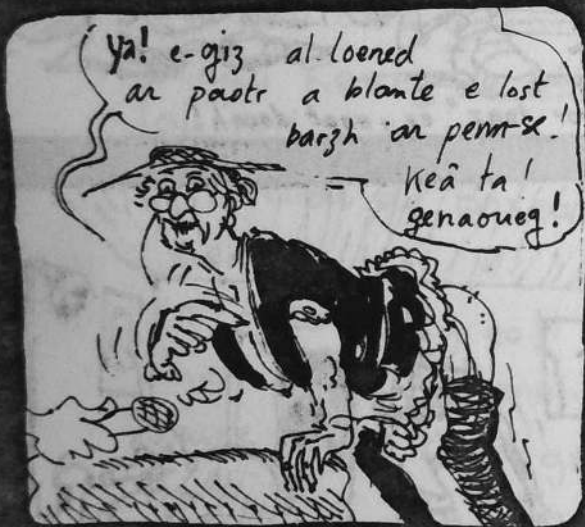 Ya! e-giz al loened
ar paotr a blante e lost
barzh ar penn-se!
Keä ta!
genaoueg!